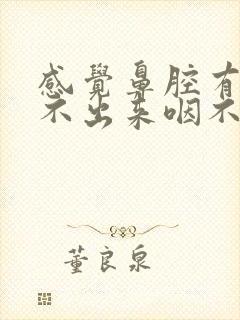 感覺鼻腔有
不出來咽不
董良泉